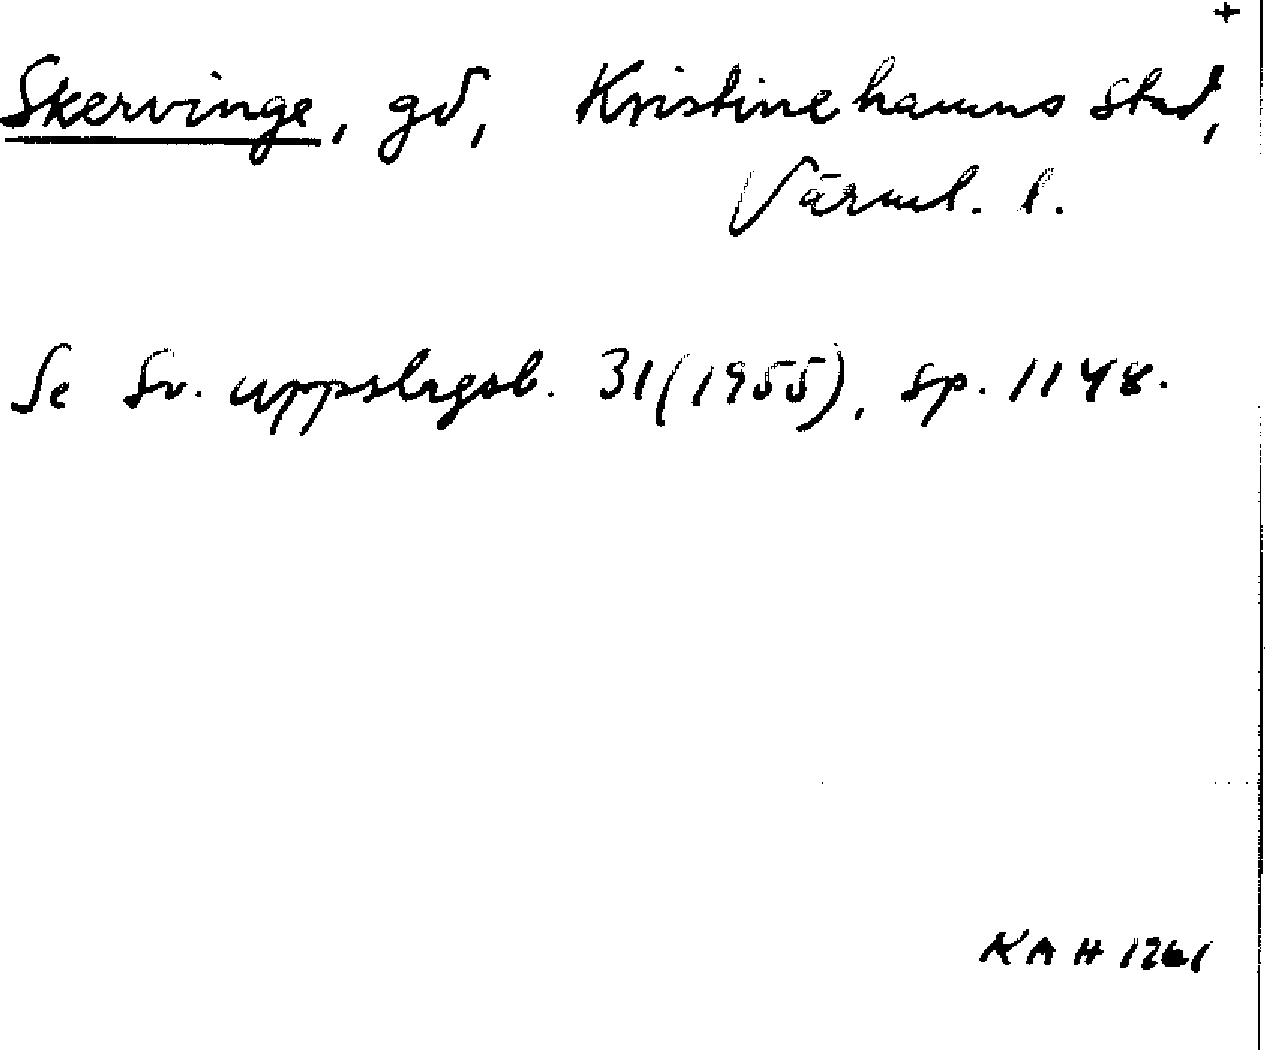 +
Skervinge, gd, Kristinehamns stad,
Värml. l.
Se Sv. uppslagsb. 31 (1955), sp. 1148.
KAH 1261